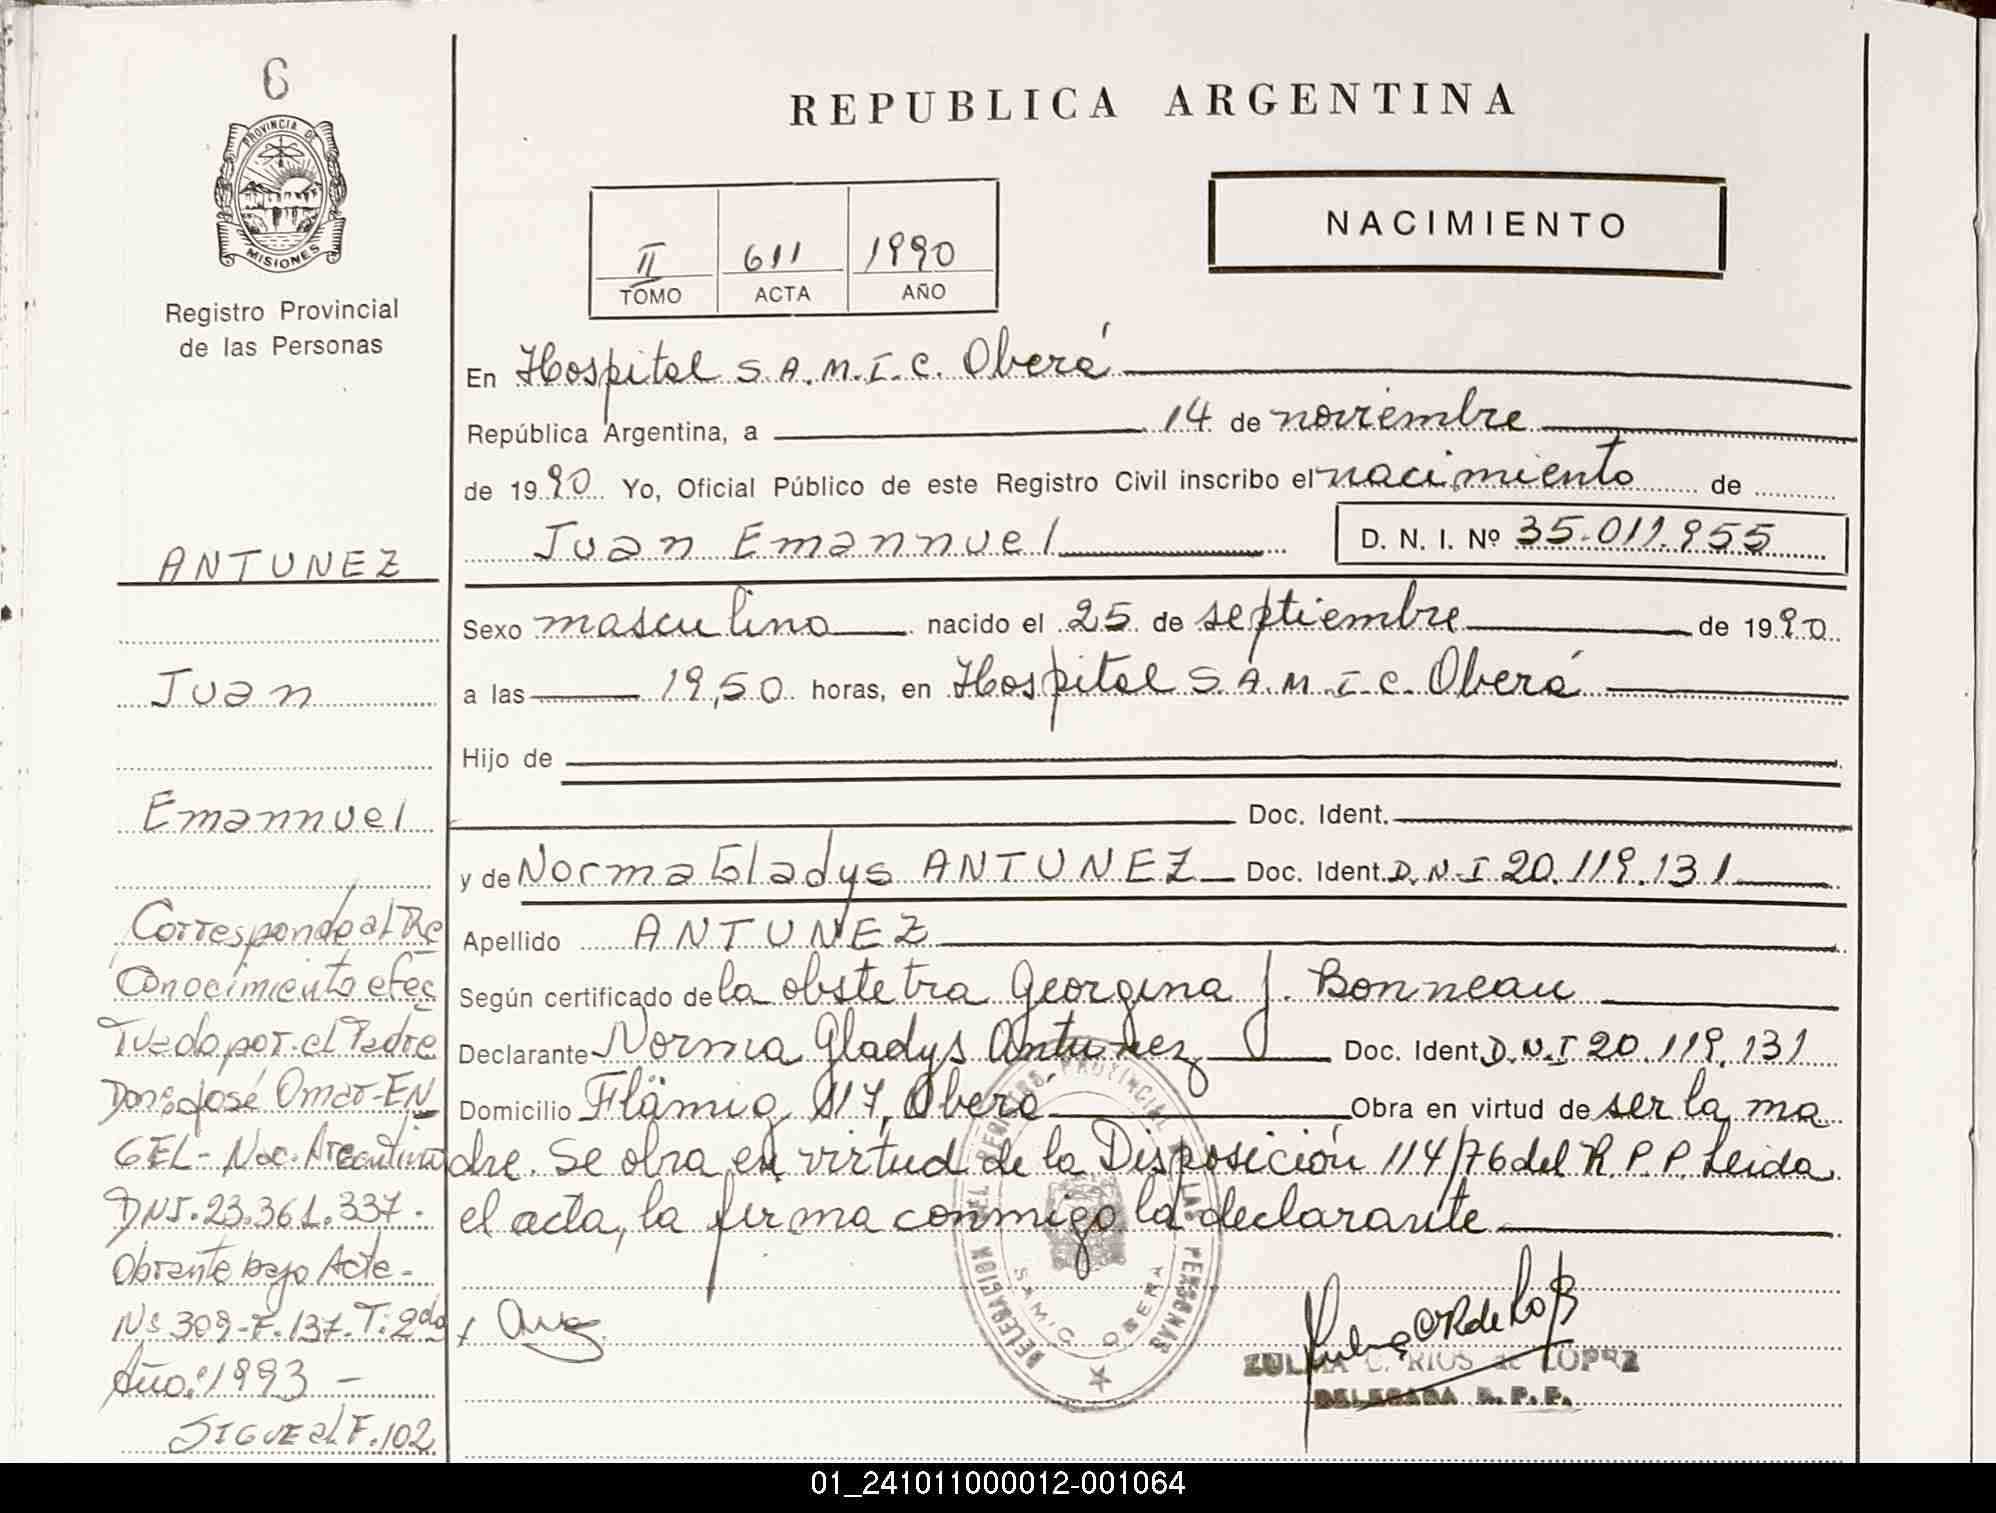 6
REPUBLICA ARGENTINA
PROVINCIA DE
MISIONES
Registro Provincial
de las Personas
II 611 1990
TOMO ACTA AÑO
NACIMIENTO
En Hospital S.A.M.I.C. Oberá
República Argentina, a 14 de noviembre
de 1990 Yo, Oficial Público de este Registro Civil inscribo el nacimiento de
Juan Emannuel D. N. I. Nº 35.011.955
Sexo masculino nacido el 25 de septiembre de 1990
a las 19,50 horas, en Hospital S.A.M.I.C. Oberá
Hijo de
Doc. Ident.
y de Norma Gladys ANTUNEZ Doc. Ident. D.N.I 20.119.131
Apellido ANTUNEZ
Según certificado de la obstetra Georgina J. Bonneau
Declarante Norma Gladys Antunez Doc. Ident. D.N.I 20.119.131
Domicilio Flämig 117, Oberá Obra en virtud de ser la ma
dre. Se obra en virtud de la Disposición 114/76 del R.P.P. Leida
el acta, la firma conmigo la declarante
ANTUNEZ
Juan
Emannuel
Corresponde al Re
Conocimiento efec
Tuado por el Padre
Don: José Omar EN
GEL - Nac. Argentino
DNI. 23.361.337.
Obrante bajo Acta -
Nº 309 - F. 137. T: 2do
Año: 1993 -
SIGUE al F. 102
DELEGACION DEL REGISTRO PROVINCIAL DE LAS PERSONAS
S.A.M.I.C. OBERA
ZULMA C. RIOS de LOPEZ
DELEGADA R. P. P.
01_241011000012-001064